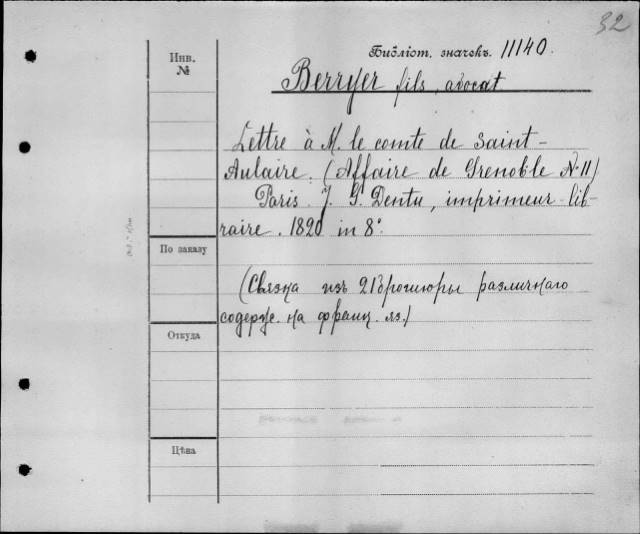 32
Инв. №
Библіот. значекъ. 11140.
Berryer fils, avocat
Lettre à M. le comte de Saint-
Aulaire. (Affaire de Grenoble № 11)
Paris. J. G. Dentu, imprimeur-lib-
raire. 1820 in 8°.
По заказу
(Связка изъ 21 брошюры различнаго
содерж. на франц. яз.)
Откуда
Цѣна